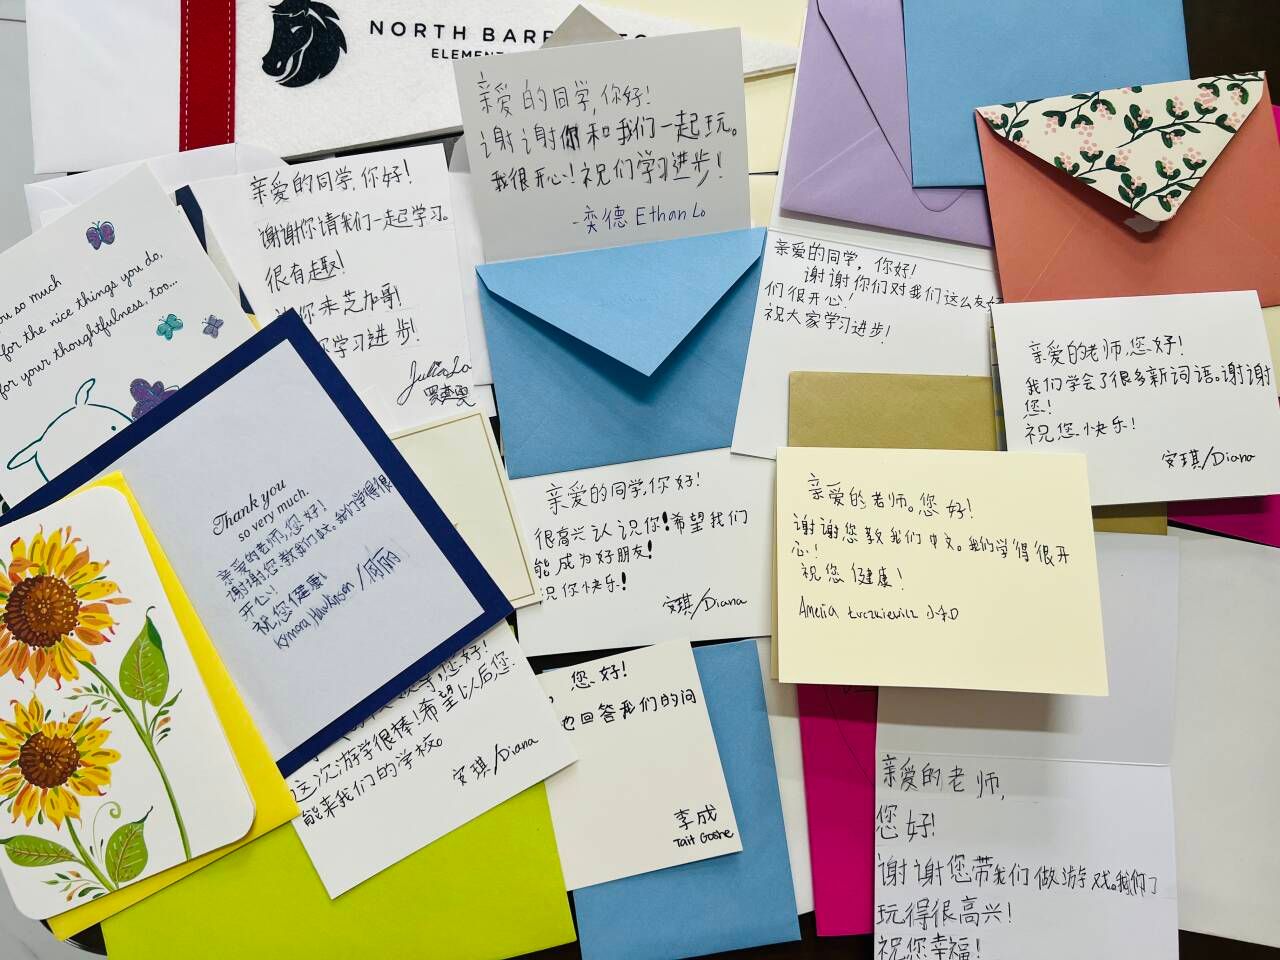 NORTH BARR
ELEMENT
亲爱的同学,你好!
谢谢你和我们一起玩。
我很开心!祝们学习进步!
-奕德 Ethan Lo
亲爱的同学,你好!
谢谢你请我们一起学习。
很有趣!
你来芝加哥!
学习进步!
Julia Lo
so much
for the nice things you do,
for your thoughtfulness, too...
亲爱的同学,你好!
谢谢你们对我们这么友好
们很开心!
祝大家学习进步!
亲爱的老师,您好!
我们学会了很多新词语。谢谢
您!
祝您快乐!
安琪/Diana
Thank you
so very much.
亲爱的老师,您好!
谢谢您教我们 我们学得很
开心!
祝您健康!
Kymora Hawkinson/
亲爱的同学,你好!
很高兴认识你!希望我们
能成为好朋友!
祝你快乐!
安琪/Diana
亲爱的老师。您好!
谢谢您教我们中文。我们学得很开
心!
祝您健康!
Amelia 小和
您好!
这次游学很棒!希望以后您
能来我们的学校。
安琪/Diana
您好!
回答我们的问
李成
Tait Goshe
亲爱的老师,
您好!
谢谢您带我们做游戏。我们
玩得很高兴!
祝您幸福!